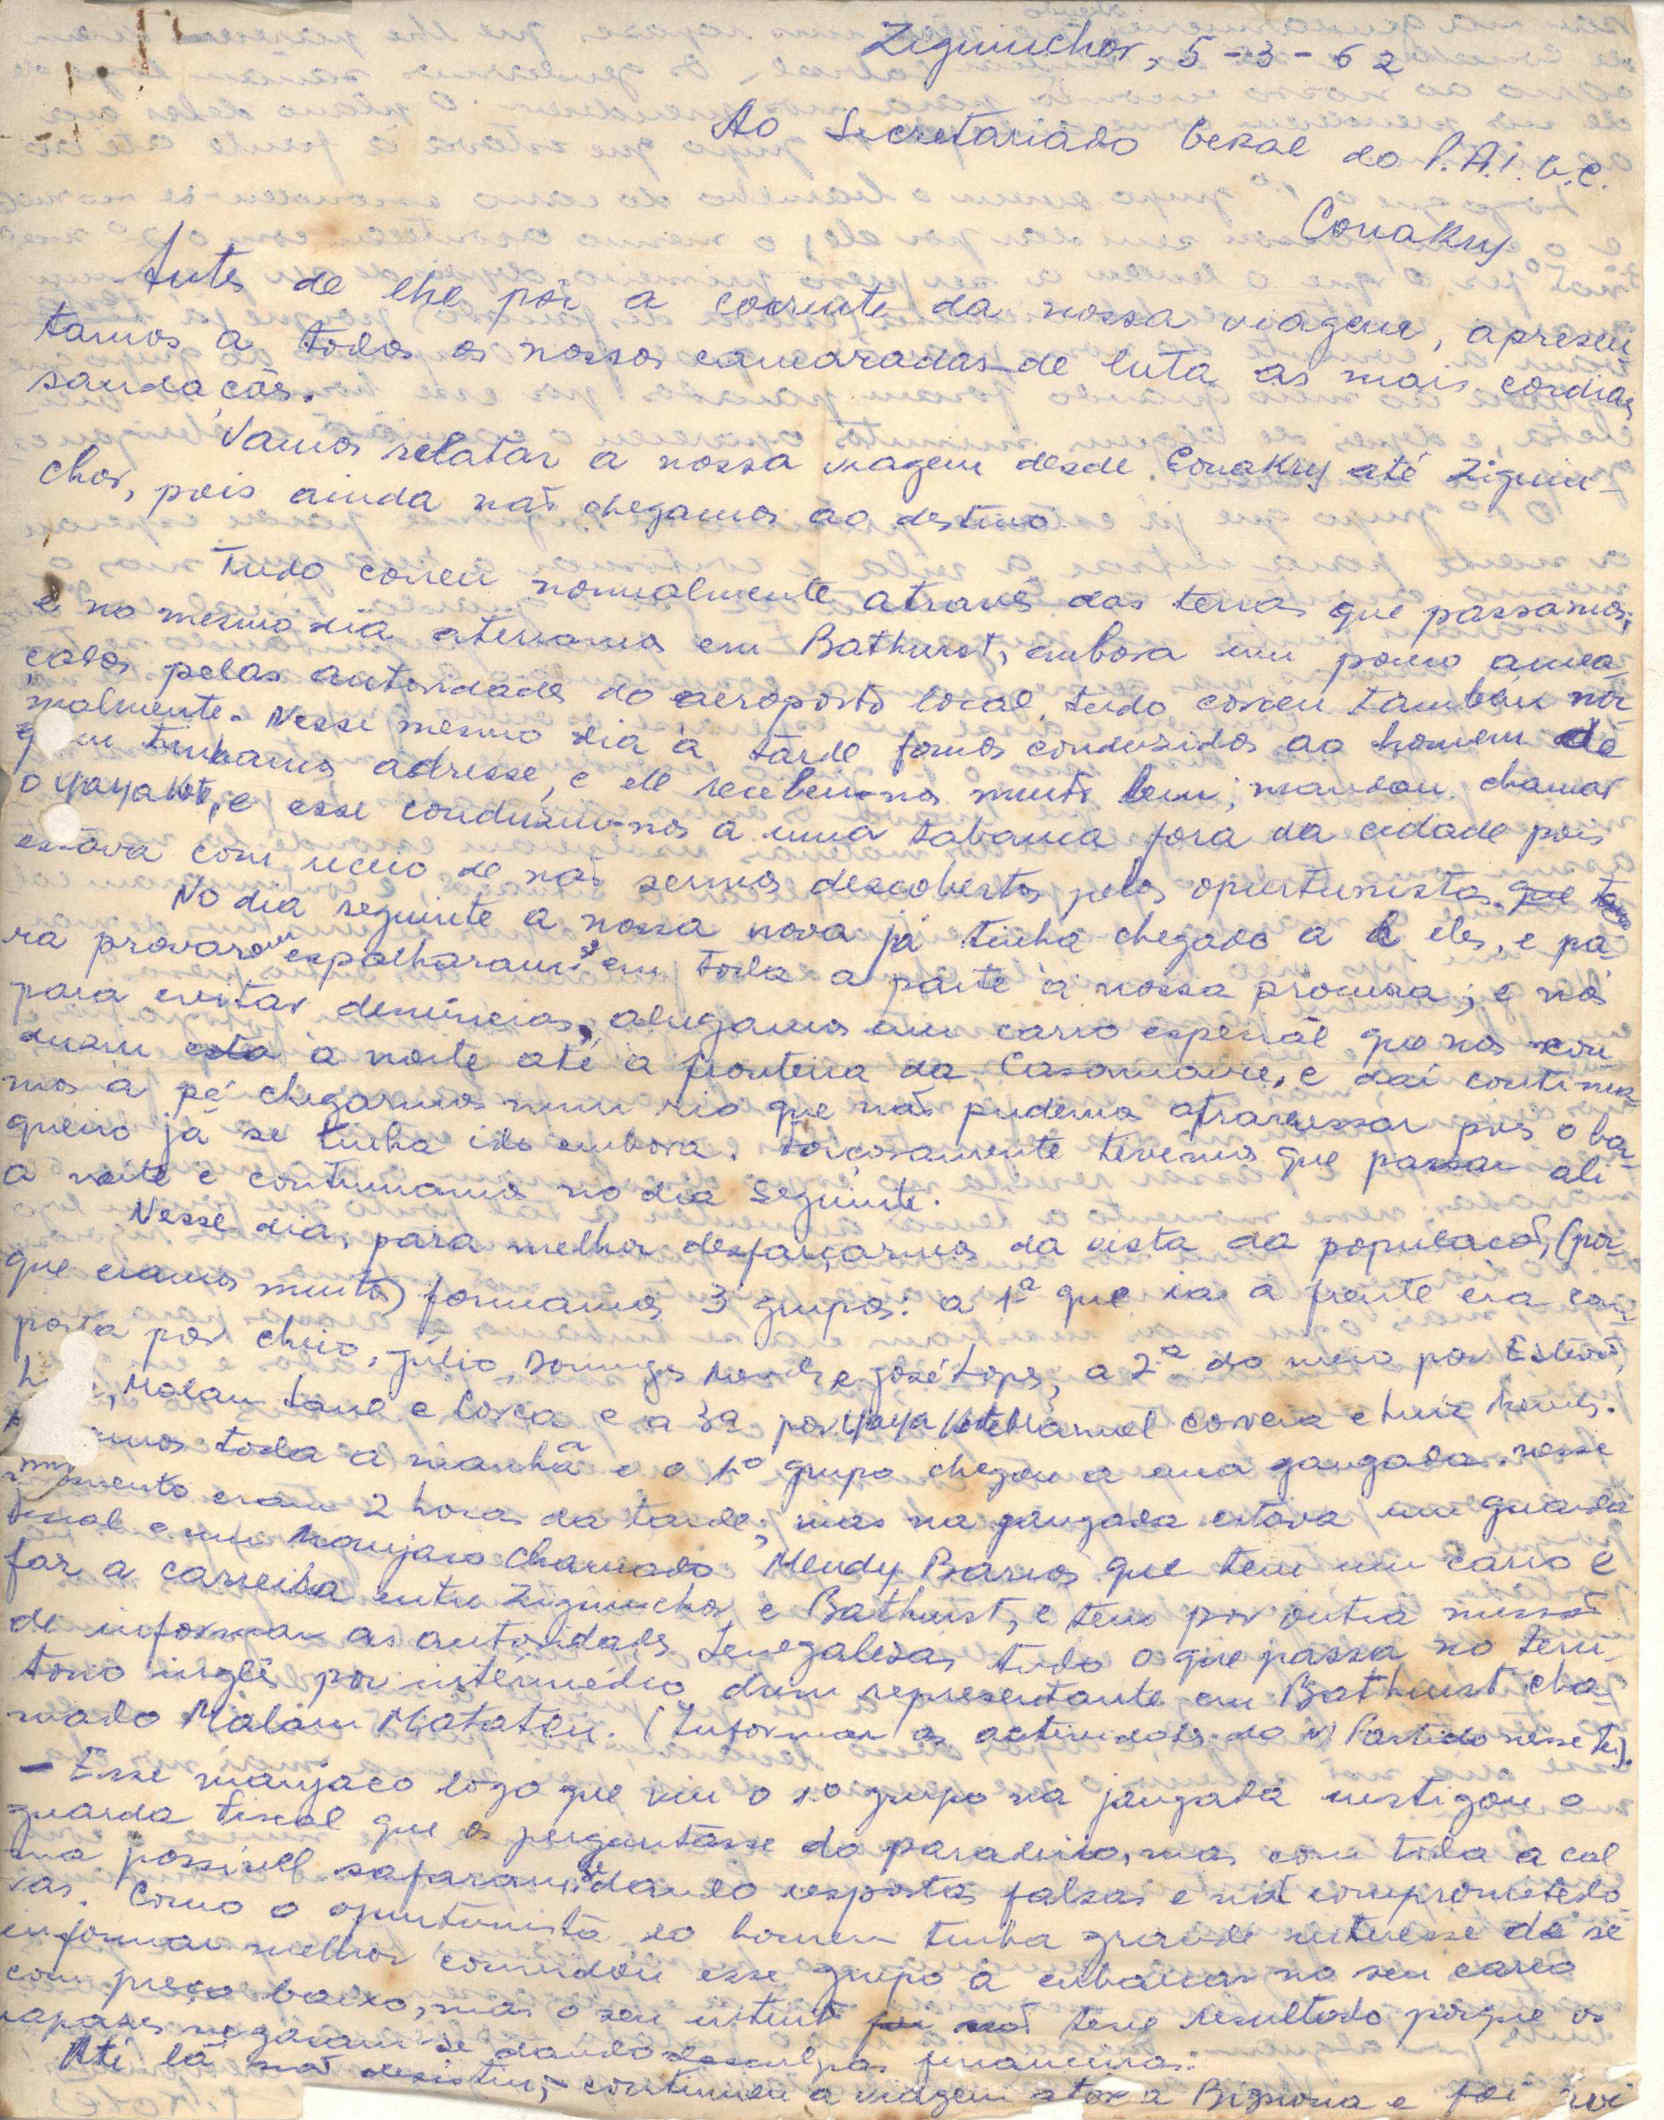 Ziguinchor, 5-3-62
Ao Secretariado Geral do P.A.I.G.C.
Conakry
Antes de lhe pôr a corrente da nossa viagem, apresen
tamos a todos os nossos camaradas de luta as mais cordiais
saudações.
Vamos relatar a nossa viagem desde Conakry até Ziguin-
chor, pois ainda não chegamos ao destino.
Tudo correu normalmente através das terras que passamos,
e no mesmo dia aterramos em Bathurst, embora um pouco amea-
çados pelas autoridades do aeroporto local, tudo correu também nor-
malmente. Nesse mesmo dia à tarde fomos condusidos ao homem de
tinhamos adresse, e ele recebeu-nos muito bem; mandou chamar
o Yaya Koté, e esse condusiu-nos a uma tabanca fora da cidade pois
estava com receio de não sermos descobertos pelos oportunistas. que
No dia seguinte a nossa nova já tinha chegado a eles, e pa
ra provarem espalharam-se em toda a parte à nossa procura; e nós
para evitar denúncias, alugamos um carro especial que nos con
duziu à noite até a fronteira da Casamance, e daí continua-
mos a pé chegarmos num rio que não pudemos atravessar pois o bar-
queiro já se tinha ido embora. Forçosamente tevemos que passar ali
a noite e continuamos no dia seguinte.
Nesse dia, para melhor desfarçarmos da vista da população, (por-
que eramos muitos) formamos 3 grupos: a 1ª que ia à frente era com-
posta por Chico, Júlio, Domingos Mendes e José Lopes, a 2ª do meio por Estevão,
Malam Sané e Corca e a 3ª por Yaya Koté Manuel Correia e Luiz Gomes.
toda a manhã e o 1º grupo chegou a uma gangada. nesse
momento eram 2 horas da tarde; mas na gangada estava um guarda
fiscal e um Manjaco chamado Mendy Barros que tem um carro e
faz a carreira entre Ziguinchor e Bathurst, e tem por outra missão
de informar as autoridades Senegalesas tudo o que passa no terri-
tório inglês por intermédio dum representante em Bathurst cha-
mado Malam Matateu. (Informar as actividades do n/ Partido nesse ter).
- Esse manjaco logo que viu o 1º grupo na jangada instigou o
guarda fiscal que os perguntasse do paradeiro, mas com toda a cal
ma possível safaram-se dando respostas falsas e não comprometedo
ras. Como o oportunista do homem tinha grande interesse de se
informar melhor convidou esse grupo a embarcar no seu carro
com preço baixo, mas o seu intento não teve resultado porque os
rapazes negaram-se dando desculpas financeiras.
Até lá não desistiu, continuou a viagem até a Bignona e foi